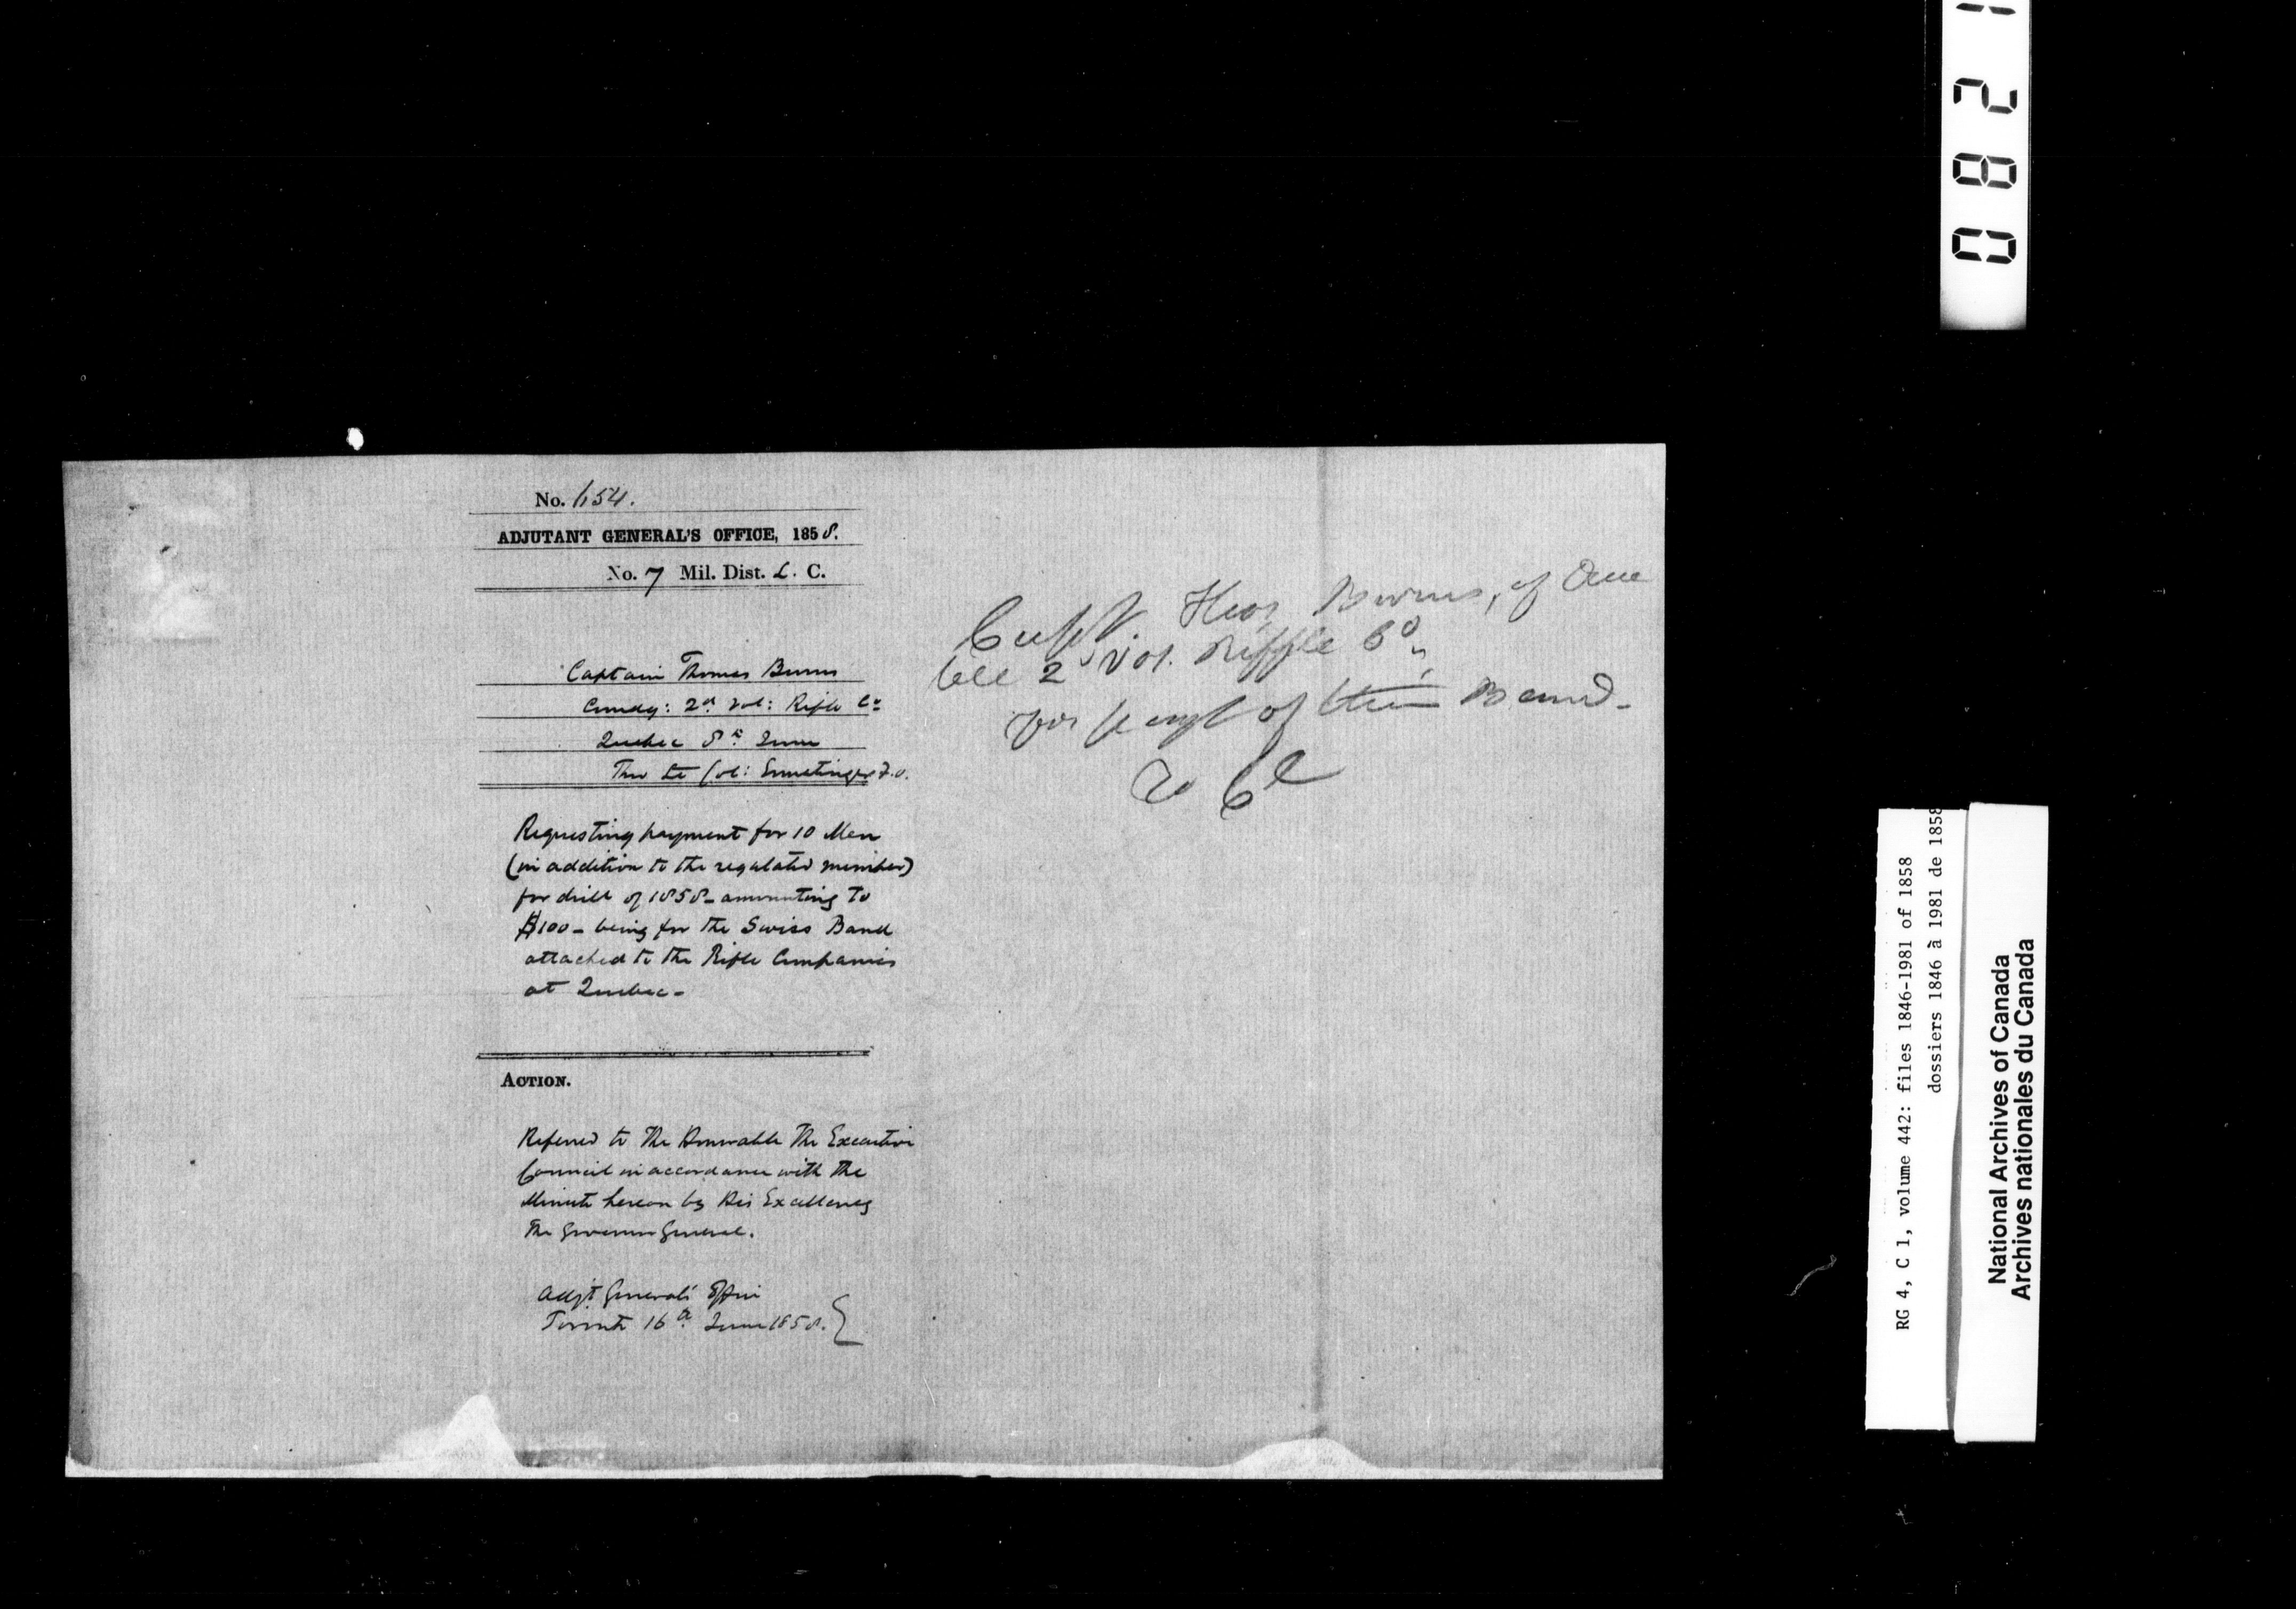 No. 654.
ADJUTANT GENERAL'S OFFICE, 1858.
No. 7 Mil. Dist. L. C.
Captain Thomas Burns
Commdg: 2d Vol: Rifle Co
Quebec 8th June
Thro Lt Col: Ermatinger F.O.
Requesting payment for 10 Men
(in addition to the regulated number)
for drill of 1858 - amounting to
$100 - being for the Swiss Band
attached to the Rifle Companies
at Quebec -
ACTION.
Referred to The Honorable The Executive
Council in accordance with the
Minute hereon by His Excellency
The Governor General.
Adjt General's Office
Toronto 16th June 1858.
Capt Thos Burns, of Que
bec 2d Vol. Riffle Co
for paymt of their Band -
0821
RG 4, C 1, volume 442: files 1846-1981 of 1858
dossiers 1846 à 1981 de 1858
National Archives of Canada
Archives nationales du Canada